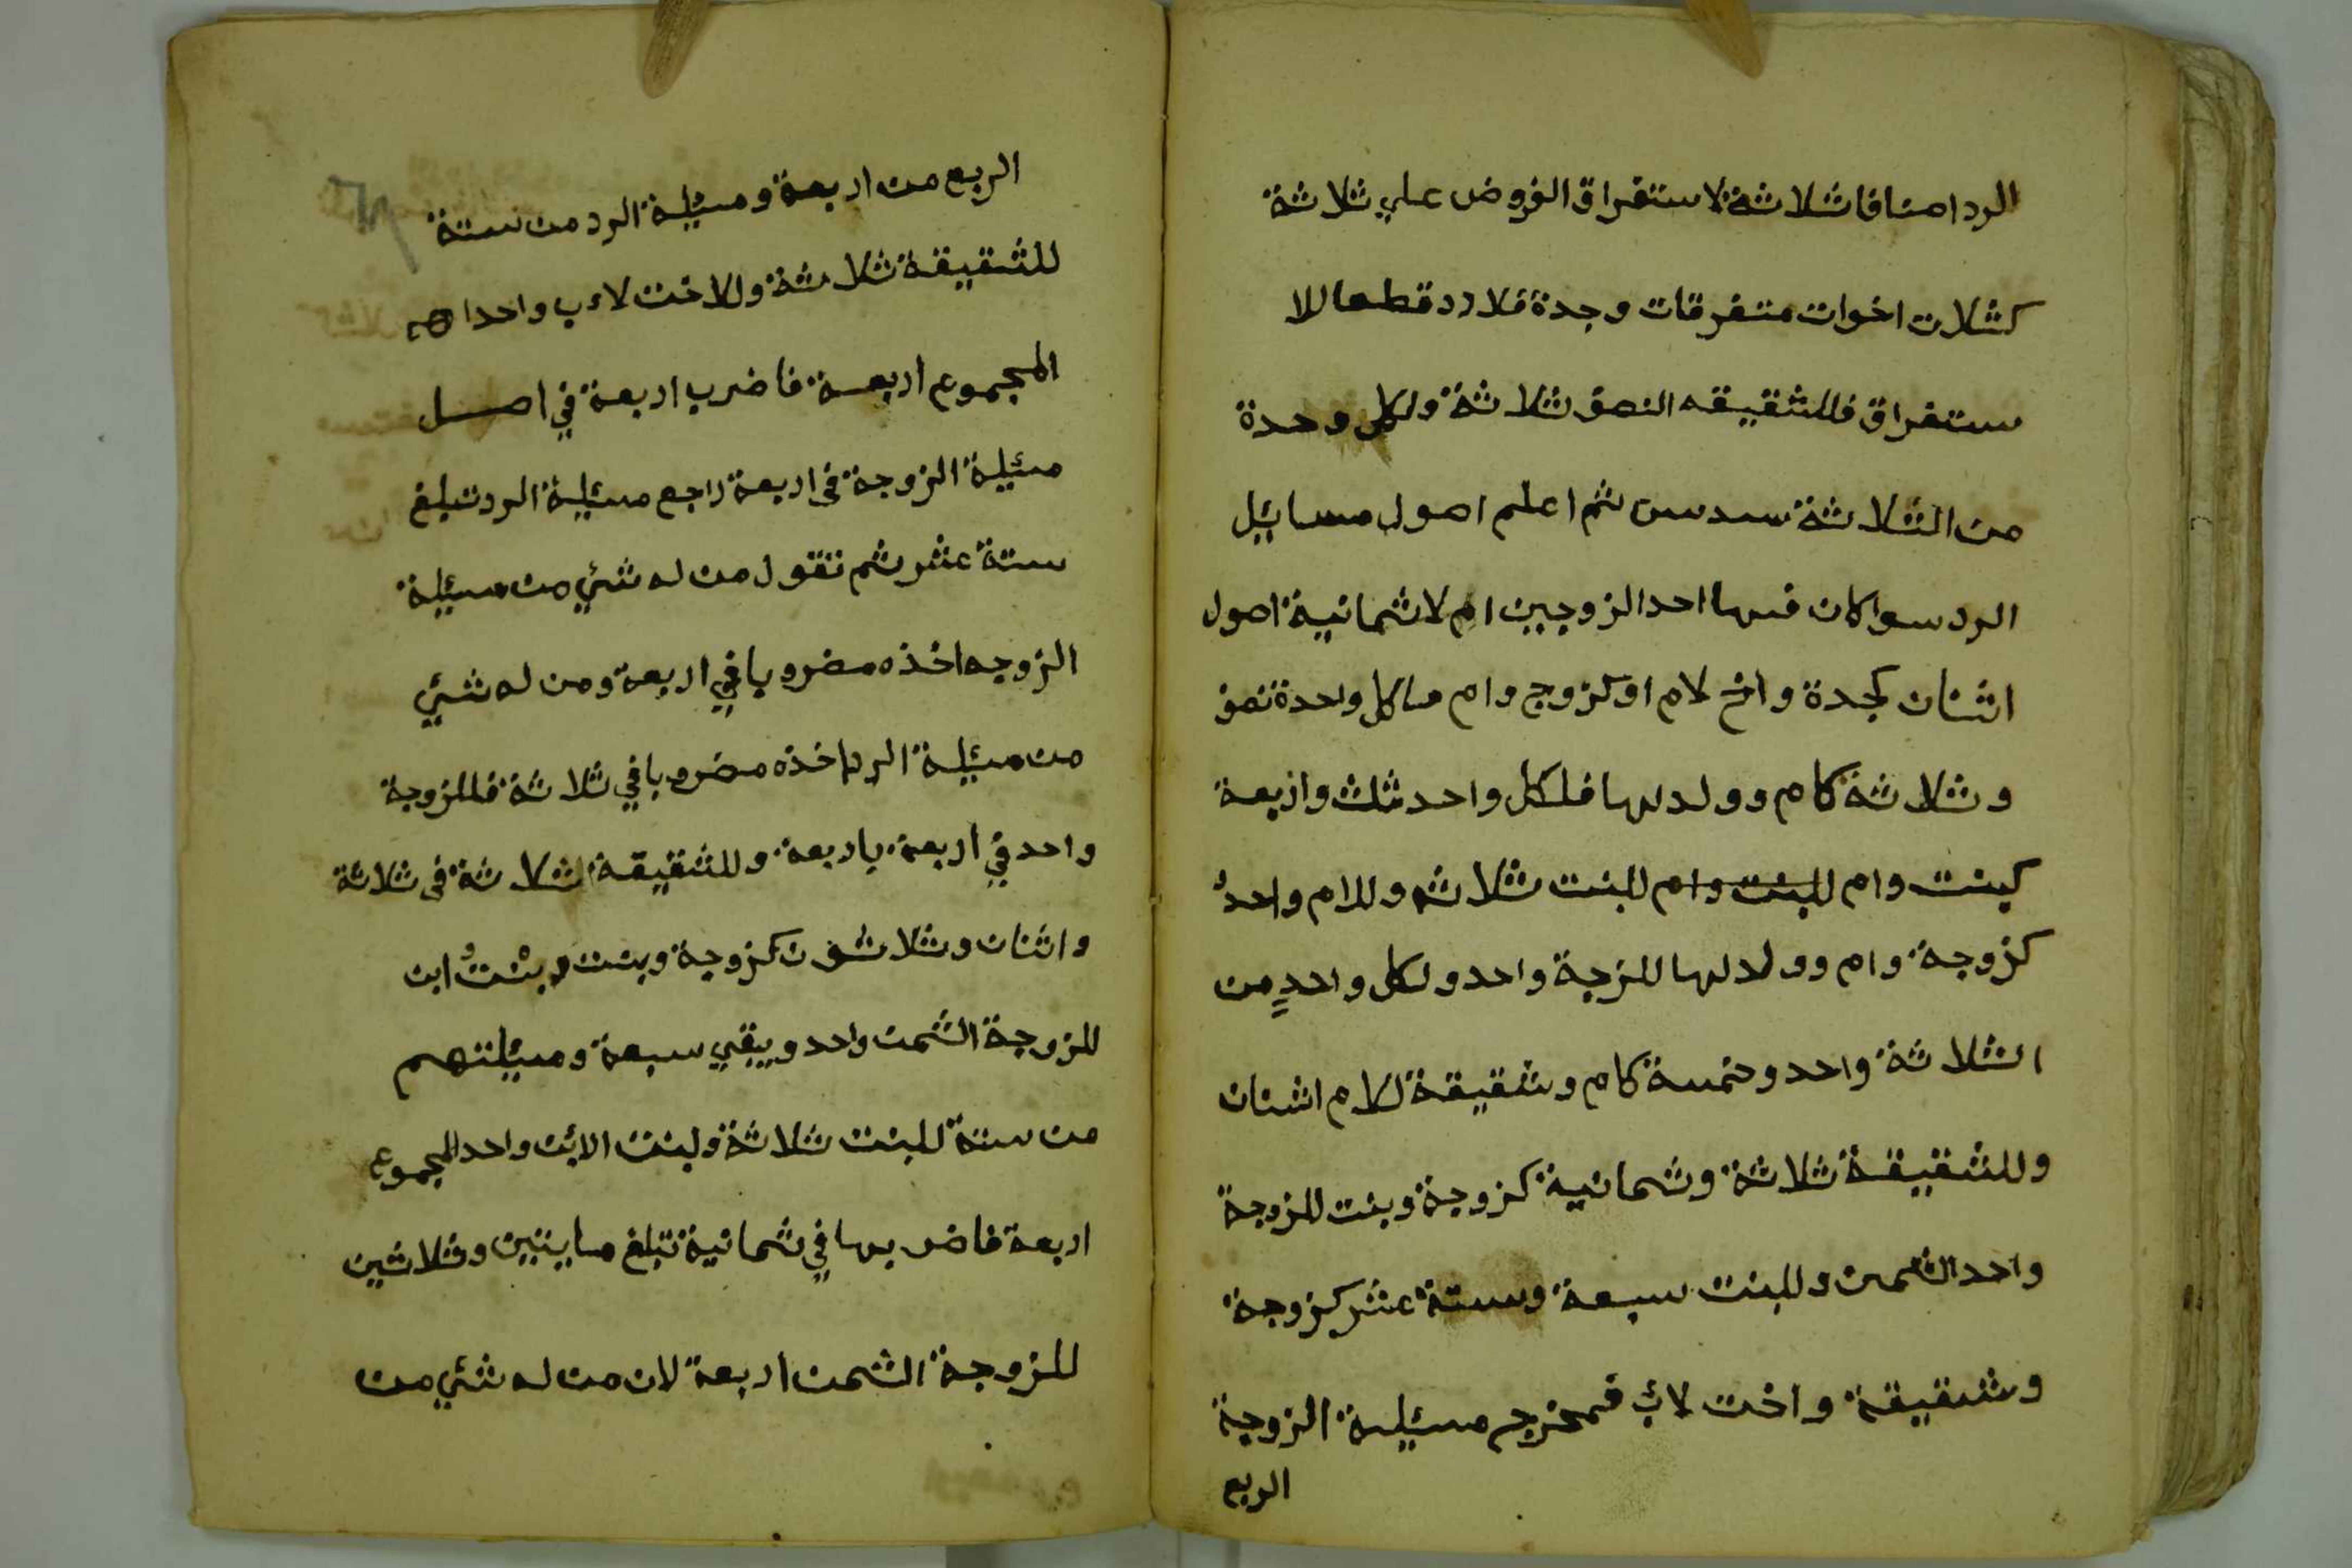 الرد اصنافا ثلاثة لاستغراق الفروض علي ثلاثة
كثلات اخوات متفرقات وجدة فلا رد قطعا للا
ستغراق فللشقيقه النصف ثلاثة ولكل وحدة
من الثلاثة سدس ثم اعلم اصول مسائيل
الرد سوا كان فيها احد الزوجين ام لا ثمانية اصول
اثنان كجدة واخ لام او كزوج وام مما كل واحدة نصف
وثلاثة كام وولديها فلكل واحد ثلث واربعة
كبنت وام للبنت وام للبنت ثلاثه وللام واحد
كزوجة وام وولديها للزجة واحد ولكل واحدٍ من
الثلاثة واحد وخمسة كام وشقيقة للام اثنان
وللشقيقة ثلاثة وثمانية كزوجة وبنت للزوجة
واحد الثمن وللبنت سبعة وستة عشر كزوجة
وشقيقة واخت لاب فمخرج مسئيلة الزوجة
الربع
الربع من اربعة ومسئيلة الرد من ستة
للشقيقة ثلاثة وللاخت لاب واحدا
المجموع اربعة فاضرب اربعة في اصل
مسئيلة الزوجة في اربعة راجع مسئيلة الرد تبلغ
ستة عشر ثم تقول من له شئي من مسئيلة
الزوجه اخذه مضروبا في اربعة ومن له شيئي
من مسئيلة الرد اخذه مضروبا في ثلاثة فللزوجة
واحد في اربعة باربعة وللشقيقة ثلاثة في ثلاثة
واثنان وثلاثون كزوجة وبنت وبنت ابن
للزوجة الثمن واحد ويبقي سبعة ومسئيلتهم
من ستة للبنت ثلاثة ولبنت الابن واحد المجموع
اربعة فاضربها في ثمانية تبلغ مايتين وثلاثين
للزوجة الثمن اربعة لان من له شئي من